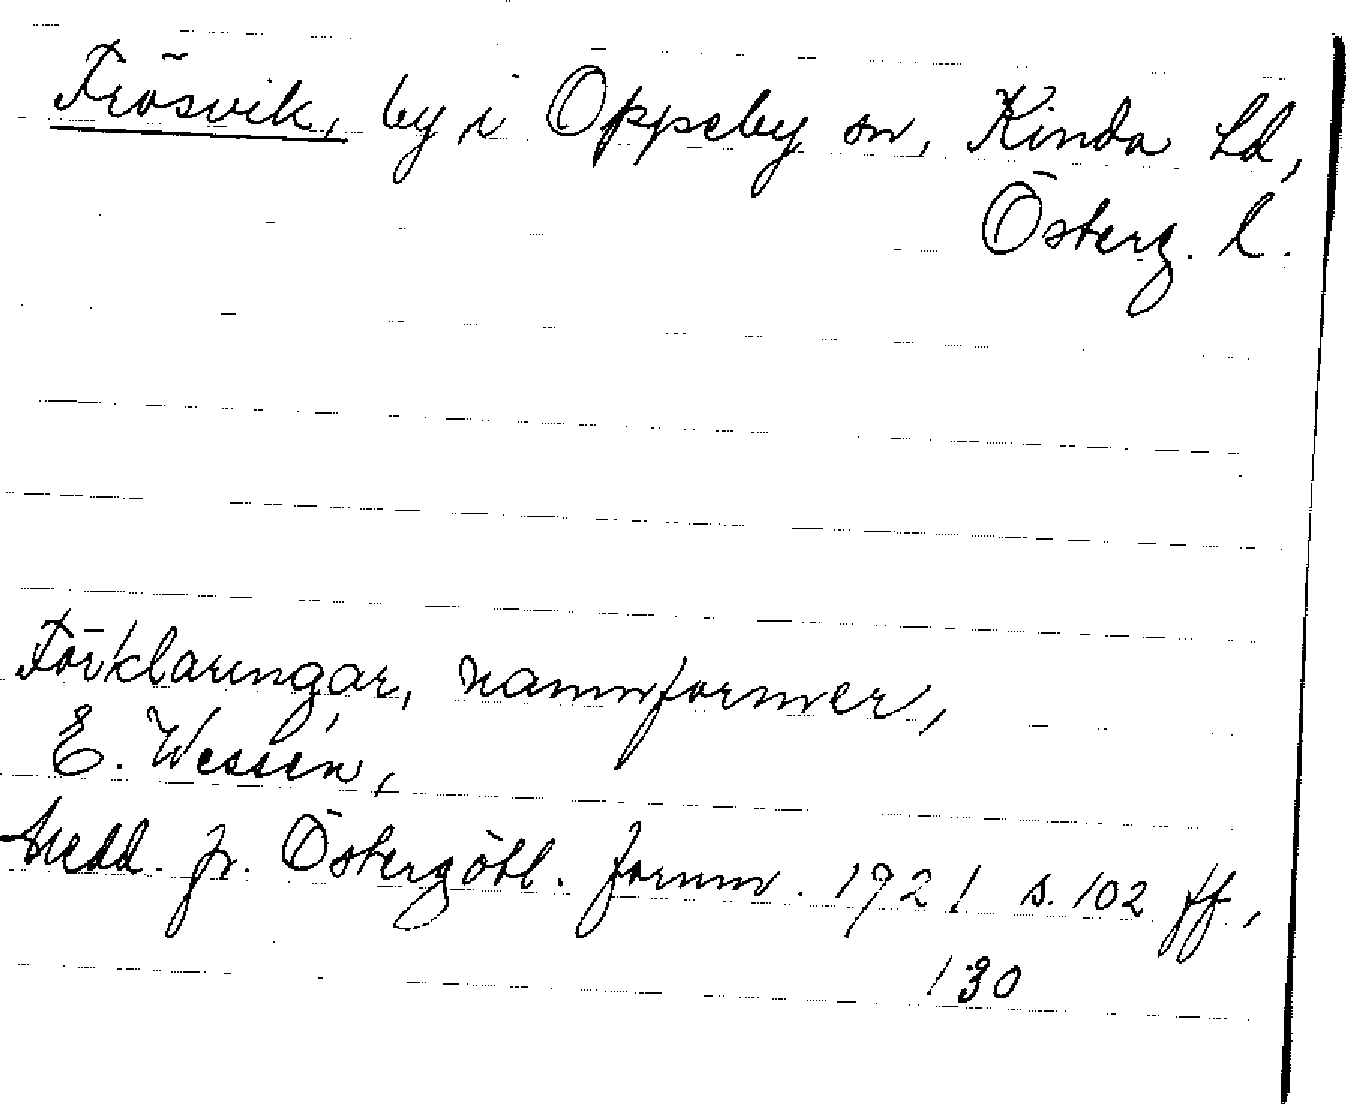 Frösvik, by i Oppeby sn, Kinda hd,
Österg. l.
Förklaringar, namnformer,
E. Wessén,
Medd. fr. Östergötl. fornm. 1921 s. 102 ff,
130